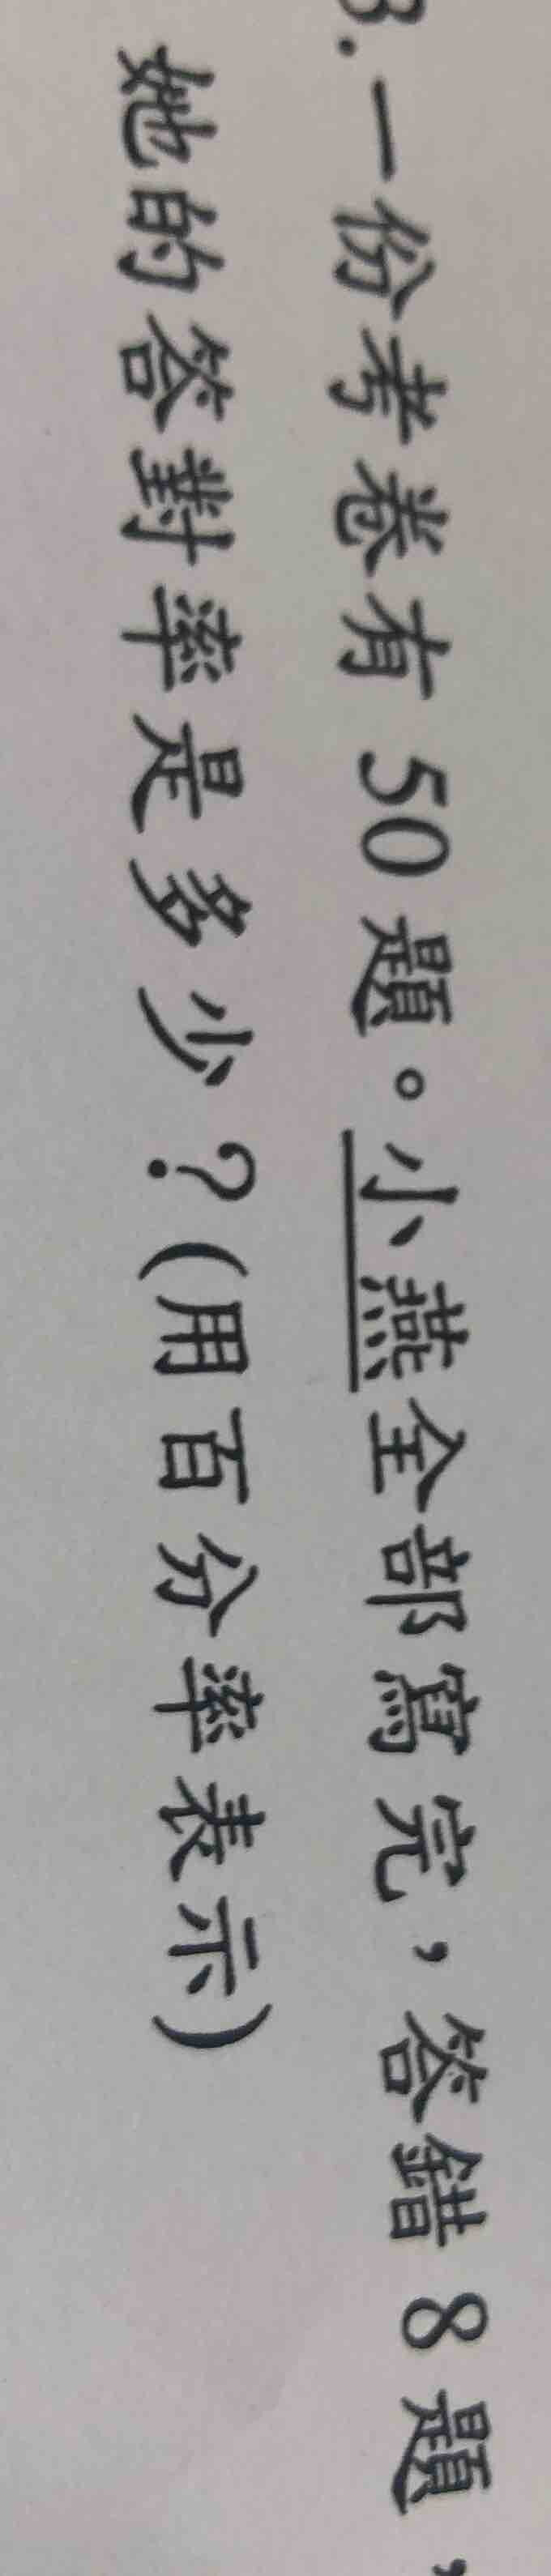 3.一份考卷有50題。小燕全部寫完，答錯8題，
她的答對率是多少？(用百分率表示)